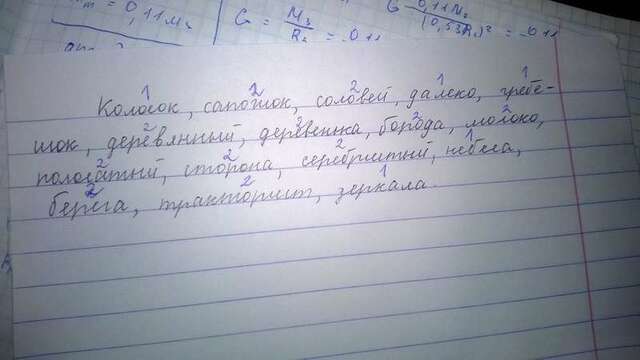 = 0,11 м₂
G = M₃ / R₂ = 0 11
G 0,11 M₂ / (0,53R₂)² = 0 11
1 2 2 1 1
Колосок, сапожок, соловей, далеко, гребе-
2 2 2 2
шок, деревянный, деревенка, борода, молоко,
2 2 2 1
полосатный, сторона, серебристый, небеса,
2 2 1
берега, тракторист, зеркала.